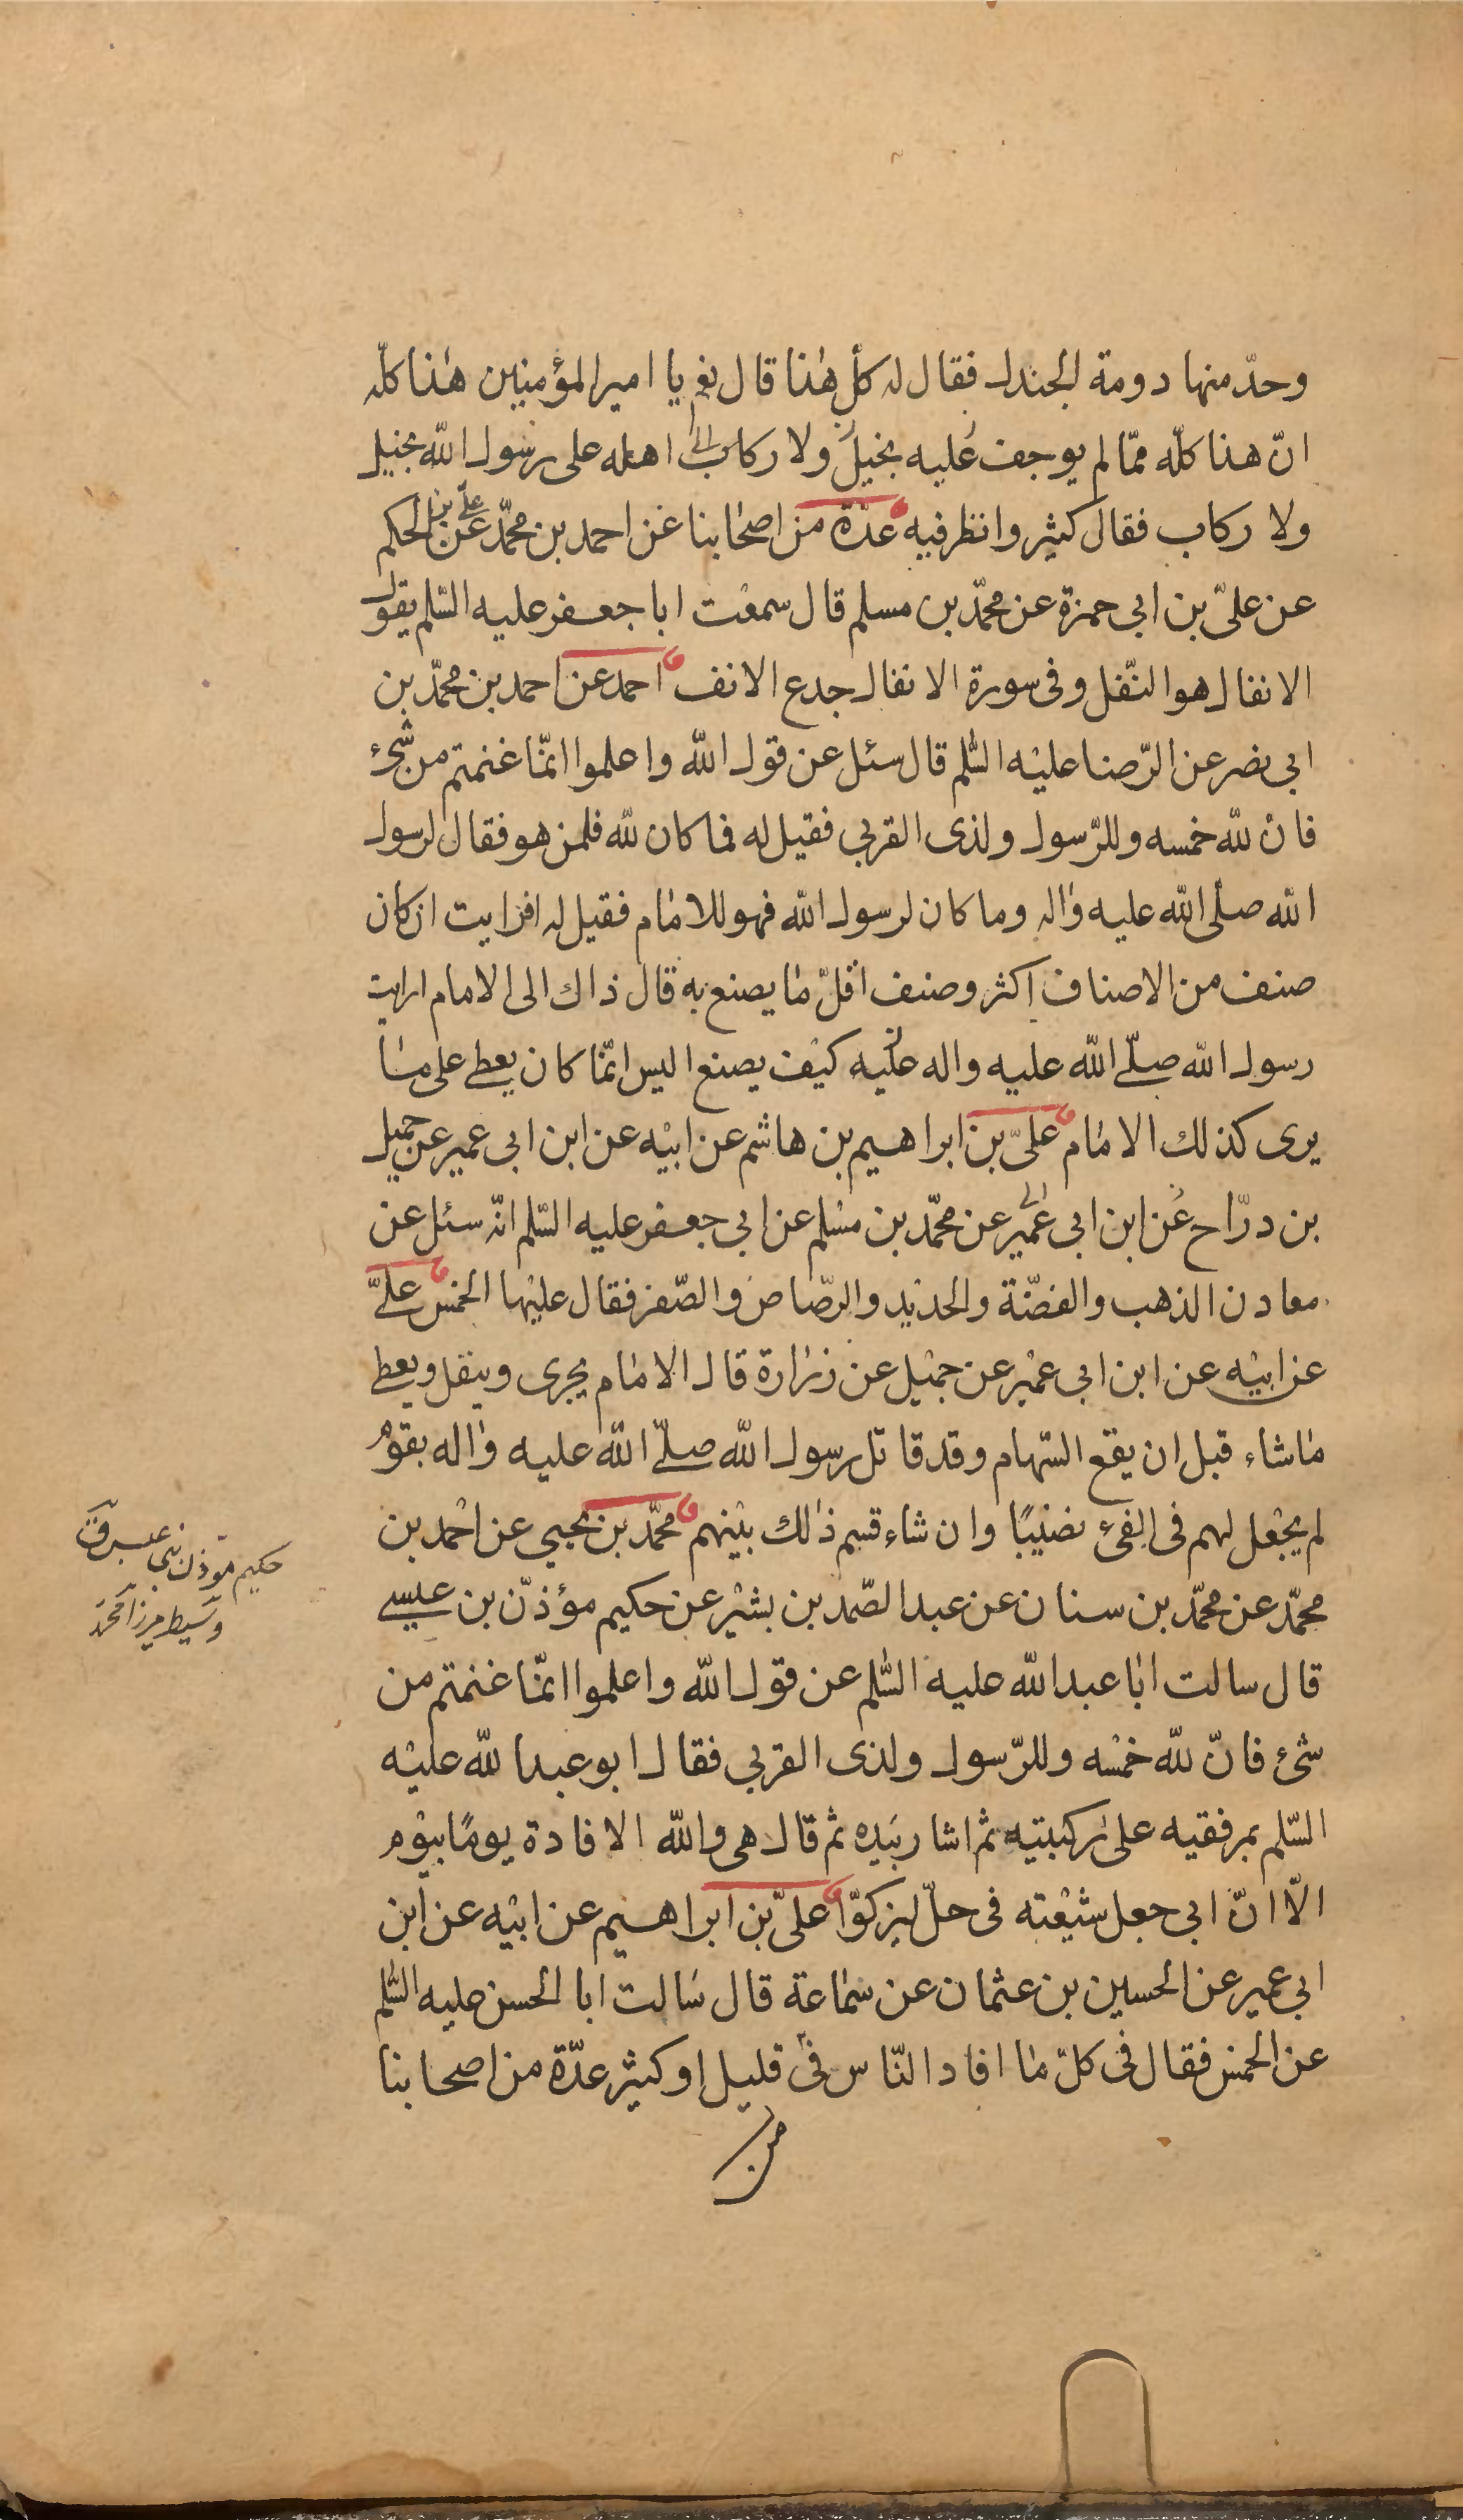 وحدّ منها دومة الجندل فقال له كلّ هذا قال نعم يا امير المؤمنين هذا كلّه
انّ هذا كلّه ممّا لم يوجف عليه بخيل ولا ركاب اهله على رسول الله بخيل
ولا ركاب فقال كثير وانظر فيه عدّة من اصحابنا عن احمد بن محمّد عن علي بن الحكم
عن علىّ بن ابى حمزة عن محمّد بن مسلم قال سمعت ابا جعفر عليه السّلم يقول
الانفال هو النّفل وفى سورة الانفال جدع الانف احمد عن احمد بن محمّد بن
ابى نصر عن الرّضا عليه السّلم قال سئل عن قول الله واعلموا انّما غنمتم من شئ
فانّ لله خمسه وللرّسول ولذى القربى فقيل له فما كان لله فلمن هو فقال لرسول
الله صلّى الله عليه واله وما كان لرسول الله فهو للامام فقيل له افرايت ان كان
صنف من الاصناف اكثر وصنف اقلّ ما يصنع به قال ذاك الى الامام ارايت
رسول الله صلّى الله عليه واله عليه كيف يصنع اليس انّما كان يعطى على ما
يرى كذلك الامام علىّ بن ابراهيم بن هاشم عن ابيه عن ابن ابى عمير عن جميل
بن درّاح عن ابن ابى عمير عن محمّد بن مسلم عن ابى جعفر عليه السّلم انّه سئل عن
معادن الذهب والفضّة والحديد والرّصاص والصّفر فقال عليها الخمس علىّ
عن ابيه عن ابن ابى عمير عن جميل عن زرارة قال الامام يجرى وينفل ويعطى
ما شاء قبل ان يقع السّهام وقد قاتل رسول الله صلّى الله عليه واله بقوم
لم يجعل لهم فى الفئ نصيبًا وان شاء قسم ذلك بينهم محمّد بن يحيى عن احمد بن
محمّد عن محمّد بن سنان عن عبد الصّمد بن بشير عن حكيم مؤذّن بن عيسى
قال سالت ابا عبد الله عليه السّلم عن قول الله واعلموا انّما غنمتم من
شئ فانّ لله خمسه وللرّسول ولذى القربى فقال ابو عبد الله عليه
السّلم بمرفقيه على ركبتيه ثم اشار بيده ثم قال هى والله الافادة يومًا بيوم
الّا انّ ابى جعل شيعته فى حلّ ليزكوّا علىّ بن ابراهيم عن ابيه عن ابن
ابى عمير عن الحسين بن عثمان عن سماعة قال سالت ابا الحسن عليه السّلم
عن الخمس فقال فى كلّ ما افاد النّاس فى قليل او كثير عدّة من اصحابنا
من
حكيم مؤذن بنى عبس